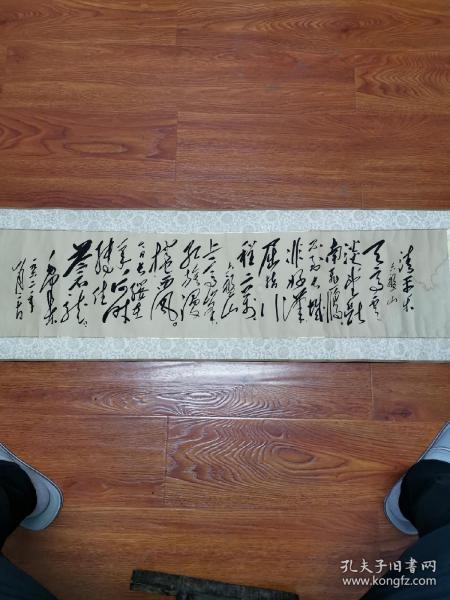 清平乐
六盘山
天高云
淡望断
南飞雁
不到长城
非好汉
屈指行
程二万
六盘山
上高峰
红旗漫
卷西风
今日长缨在
手何时
缚住
苍龙
毛泽东
孔夫子旧书网
www.kongfz.com